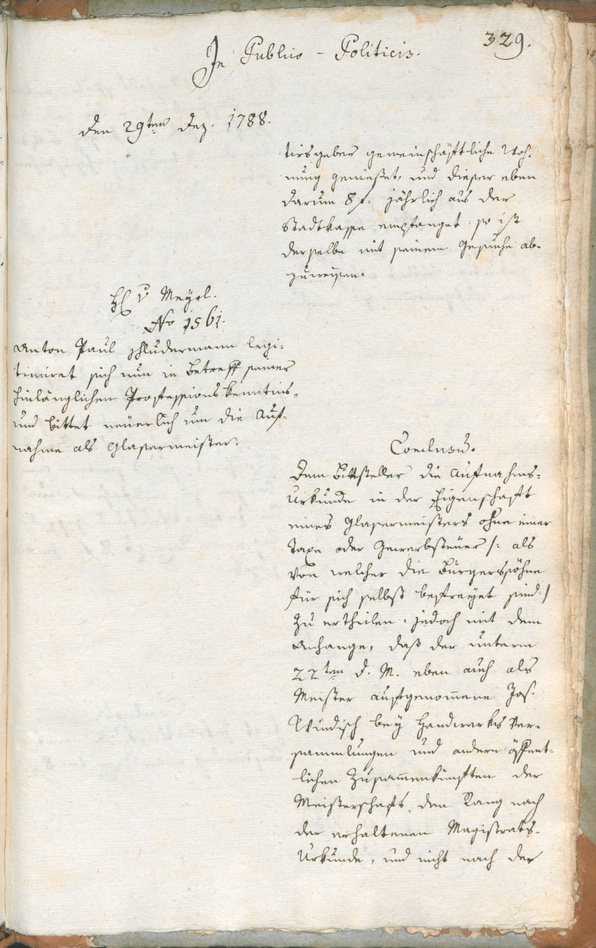 In Publico-Politicis.
329.
den 29ten Dez. 1788.
tirsgeber gemeinschäftliche Woh„
nung genießet, und dieser eben
darum 8 f. jährlich aus der
Stadtkasse empfanget, so ist
derselbe mit seinem Gesuche ab„
zuweisen.
H v Mayrl.
No 1561.
Anton Paul Schludermann legi„
timiret sich nun in Betreff seiner
hinlänglichen Professionskenntnis„
und bittet neuerlich um die Auf„
nahme als Glasermeister.
Conclusum.
Dem Bittsteller die Aufnahms„
Urkunde in der Eigenschaft
eines Glasermeisters ohne einer
Taxe oder Gewerbsteuer /: als
von welcher die Bürgerssöhne
für sich selbst befreyet sind :/
zu ertheilen. jedoch mit dem
Anhange, daß der unterm
22ten d. M. eben auch als
Meister aufgenommene Jos.
Windisch bey Handwerksver„
sammlungen und andern öffent„
lichen Zusammenkünften der
Meisterschaft, den Rang nach
der erhaltenen Magistrats„
Urkunde, und nicht nach der